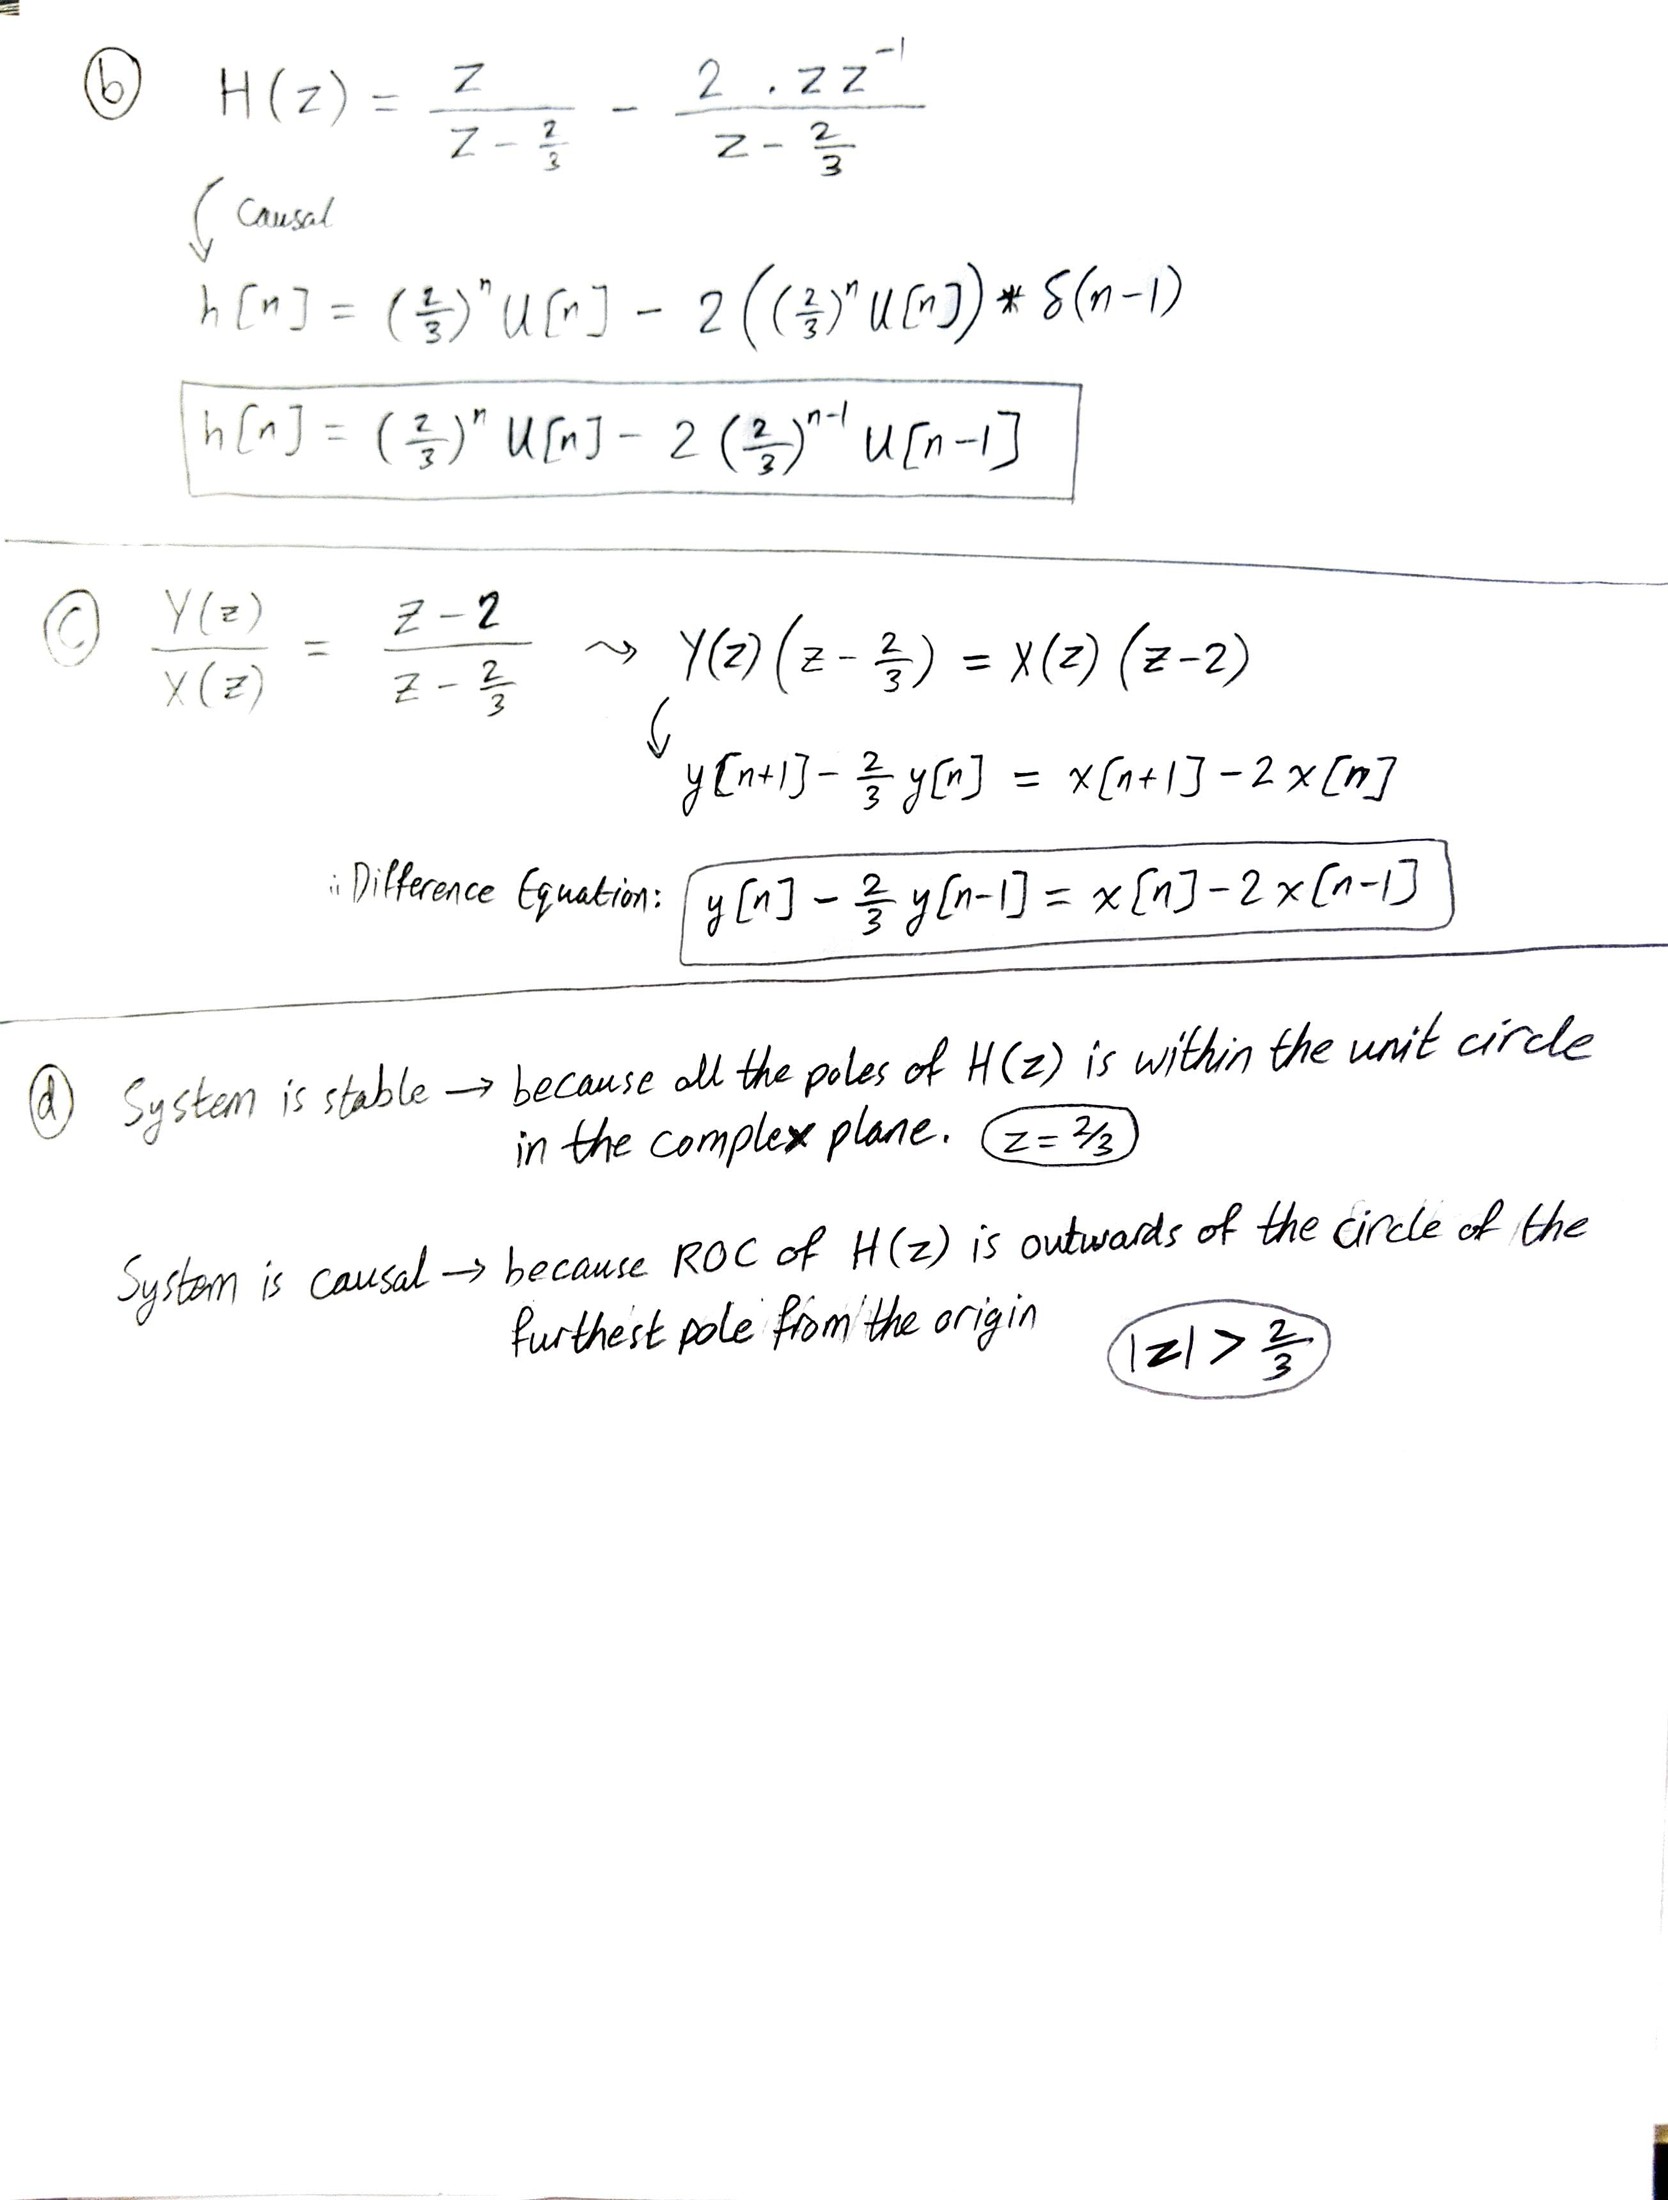 ⓑ H(z) = z / (z - 2/3) - 2 . z z⁻¹ / (z - 2/3)
Causal
h[n] = (2/3)ⁿ U[n] - 2((2/3)ⁿ U[n]) * δ(n-1)
h[n] = (2/3)ⁿ U[n] - 2(2/3)ⁿ⁻¹ U[n-1]
ⓒ Y(z) / X(z) = (z - 2) / (z - 2/3) ⇝ Y(z)(z - 2/3) = X(z)(z-2)
y[n+1] - 2/3 y[n] = x[n+1] - 2x[n]
∴ Difference Equation: y[n] - 2/3 y[n-1] = x[n] - 2x[n-1]
ⓓ System is stable → because all the poles of H(z) is within the unit circle
in the complex plane. z = 2/3
System is causal → because ROC of H(z) is outwards of the circle of the
furthest pole from the origin |z| > 2/3